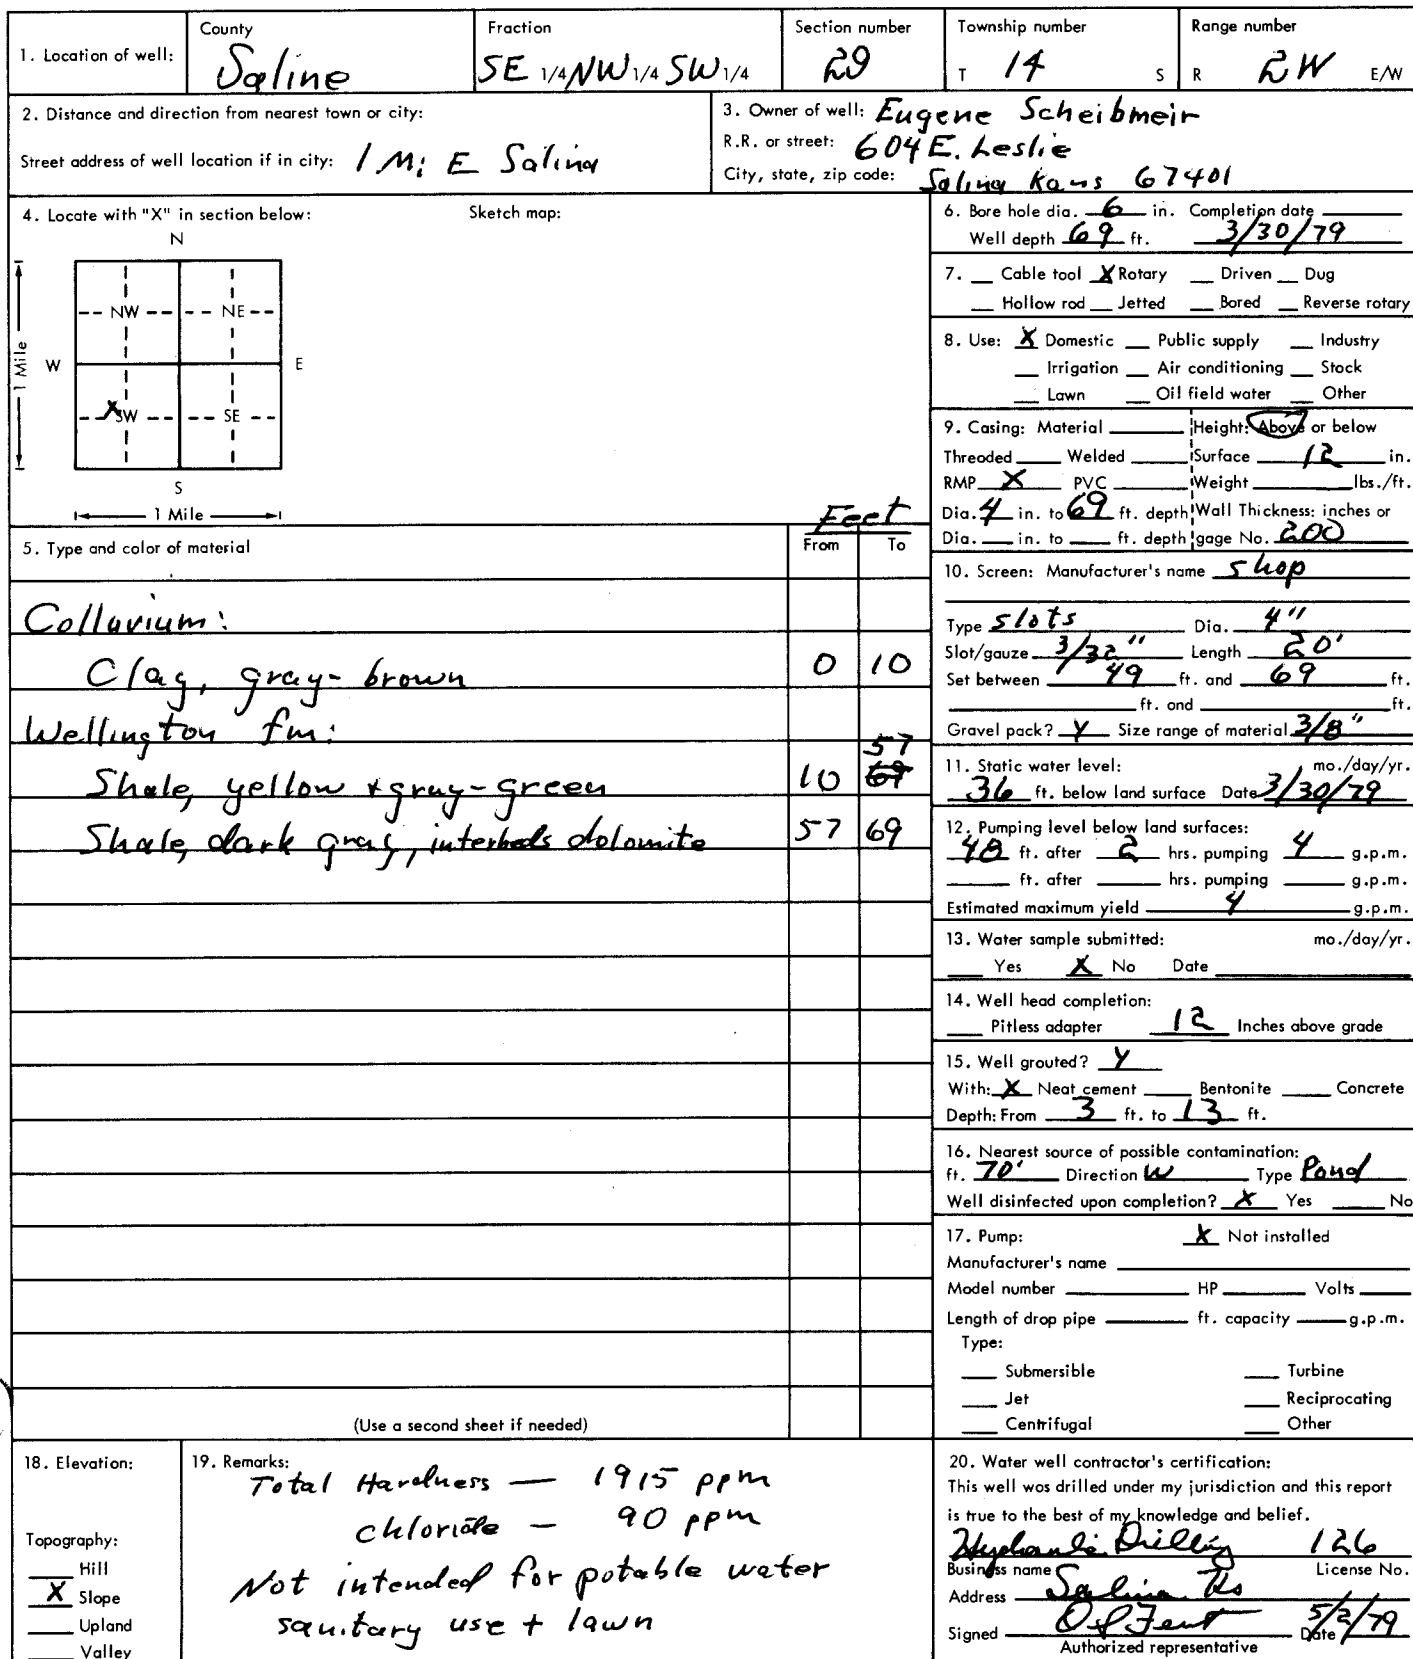 1. Location of well: County Saline Fraction SE 1/4 NW 1/4 SW 1/4 Section number 29 Township number T 14 S Range number R 2W E/W
2. Distance and direction from nearest town or city:
Street address of well location if in city: 1 Mi E Salina
3. Owner of well: Eugene Scheibmeir
R.R. or street: 604 E. Leslie
City, state, zip code: Salina Kans 67401
4. Locate with "X" in section below: Sketch map:
N
NW NE
W E
1 Mile
X SW SE
S
1 Mile
Feet
5. Type and color of material From To
Colluvium:
Clay, gray-brown 0 10
Wellington fm:
57
Shale, yellow + gray-green 10 69
Shale, dark gray, interbeds dolomite 57 69
(Use a second sheet if needed)
6. Bore hole dia. 6 in. Completion date
Well depth 69 ft. 3/30/79
7. Cable tool X Rotary Driven Dug
Hollow rod Jetted Bored Reverse rotary
8. Use: X Domestic Public supply Industry
Irrigation Air conditioning Stock
Lawn Oil field water Other
9. Casing: Material Height: Above or below
Threoded Welded Surface 12 in.
RMP X PVC Weight lbs./ft.
Dia. 4 in. to 69 ft. depth Wall Thickness: inches or
Dia. in. to ft. depth gage No. 200
10. Screen: Manufacturer's name shop
Type slots Dia. 4"
Slot/gauze 3/32" Length 20'
Set between 49 ft. and 69 ft.
ft. and ft.
Gravel pack? Y Size range of material 3/8"
11. Static water level: mo./day/yr.
36 ft. below land surface Date 3/30/79
12. Pumping level below land surfaces:
48 ft. after 2 hrs. pumping 4 g.p.m.
ft. after hrs. pumping g.p.m.
Estimated maximum yield 4 g.p.m.
13. Water sample submitted: mo./day/yr.
Yes X No Date
14. Well head completion:
Pitless adapter 12 Inches above grade
15. Well grouted? Y
With: X Neat cement Bentonite Concrete
Depth: From 3 ft. to 13 ft.
16. Nearest source of possible contamination:
ft. 70' Direction W Type Pond
Well disinfected upon completion? X Yes No
17. Pump: X Not installed
Manufacturer's name
Model number HP Volts
Length of drop pipe ft. capacity g.p.m.
Type:
Submersible Turbine
Jet Reciprocating
Centrifugal Other
18. Elevation:
Topography:
Hill
X Slope
Upland
Valley
19. Remarks:
Total Hardness — 1915 ppm
chloride - 90 ppm
Not intended for potable water
sanitary use + lawn
20. Water well contractor's certification:
This well was drilled under my jurisdiction and this report
is true to the best of my knowledge and belief.
Drilling 126
Business name License No.
Address Salina Ks
Signed Fent Date 5/2/79
Authorized representative